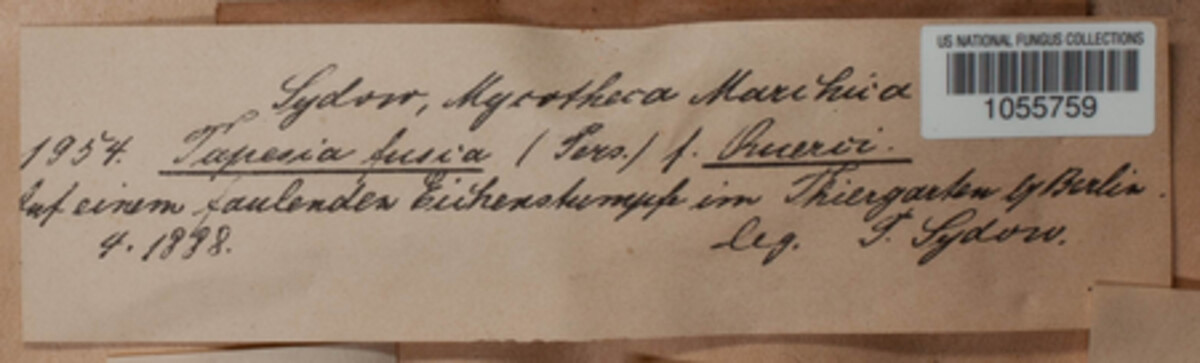 US NATIONAL FUNGUS COLLECTIONS
1055759
Sydow, Mycotheca Marchica
1954. Tapesia fusca (Pers.) f. Querci.
Auf einem faulenden Eichenstumpfe im Thiergarten b/ Berlin.
4. 1888. leg. P. Sydow.